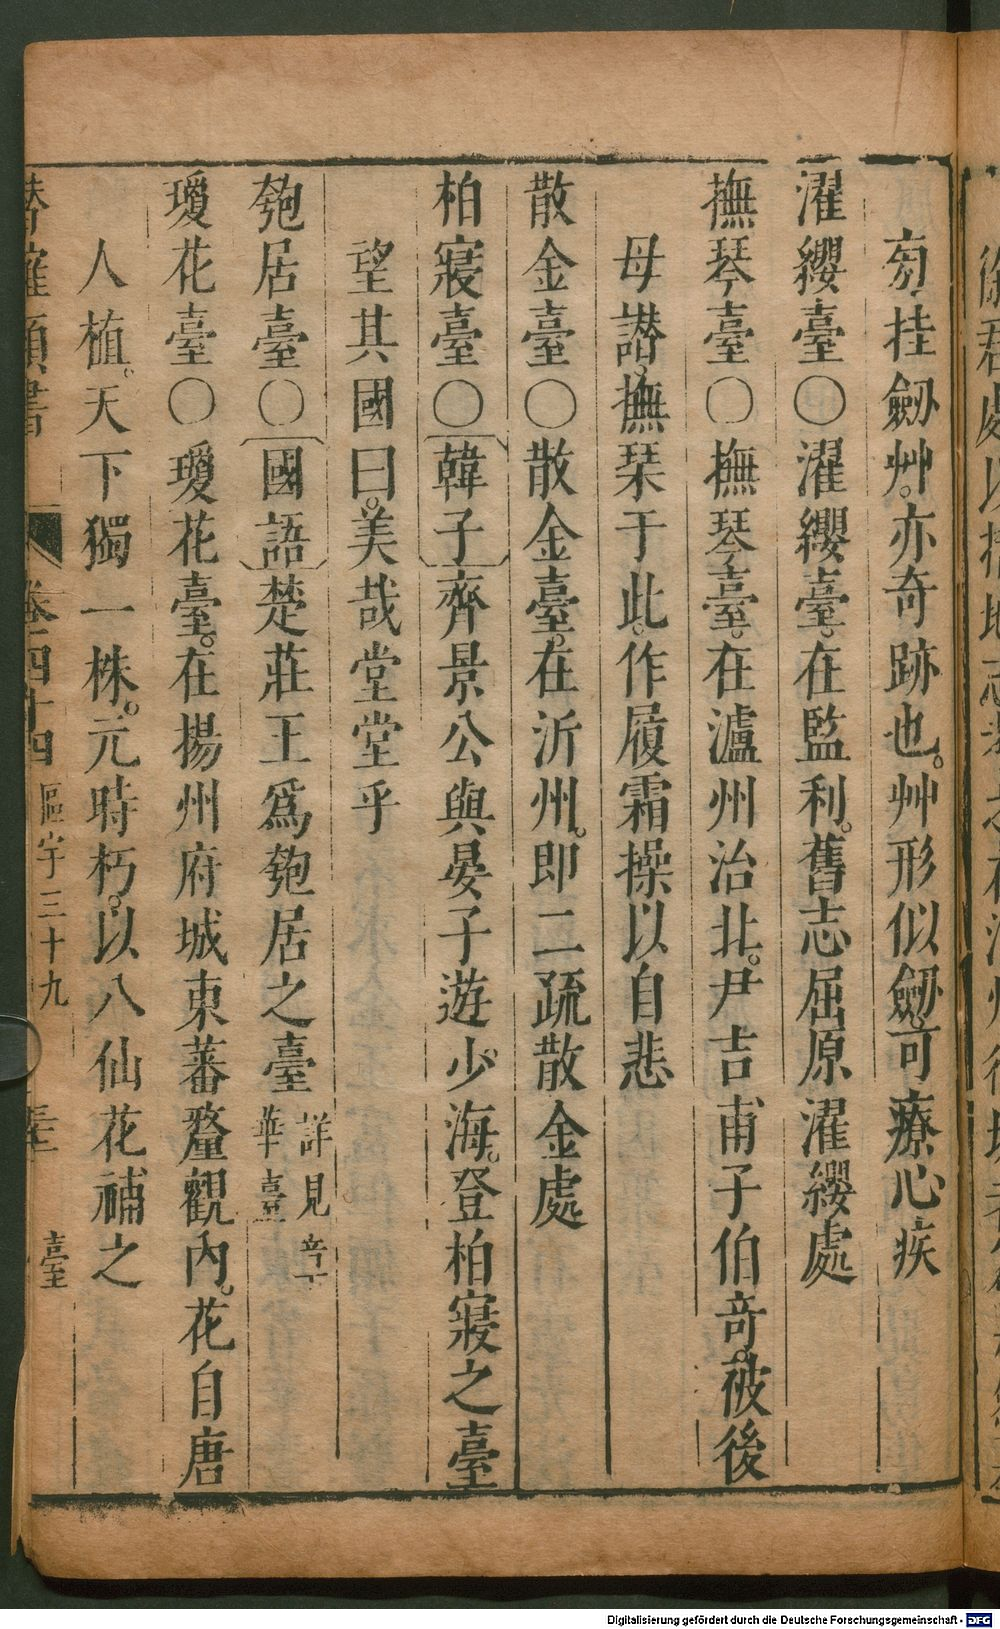 有挂劒艸。亦奇跡也。艸形似劒。可療心疾
濯纓臺○濯纓臺。在監利。舊志屈原濯纓處
撫琴臺○撫琴臺。在瀘州治北。尹吉甫子伯奇。被後
母譖。撫琴于此。作履霜操以自悲
散金臺○散金臺。在沂州。即二疏散金處
柏寢臺○韓子齊景公與晏子遊少海。登柏寢之臺
望其國曰。美哉堂堂乎
匏居臺○國語楚莊王爲匏居之臺詳見章下
華臺
瓊花臺○瓊花臺。在揚州府城東蕃釐觀內。花自唐
人植。天下獨一株。元時朽。以八仙花補之
潛確類書 卷二四十四 區宇三十九 臺
Digitalisierung gefördert durch die Deutsche Forschungsgemeinschaft - DFG